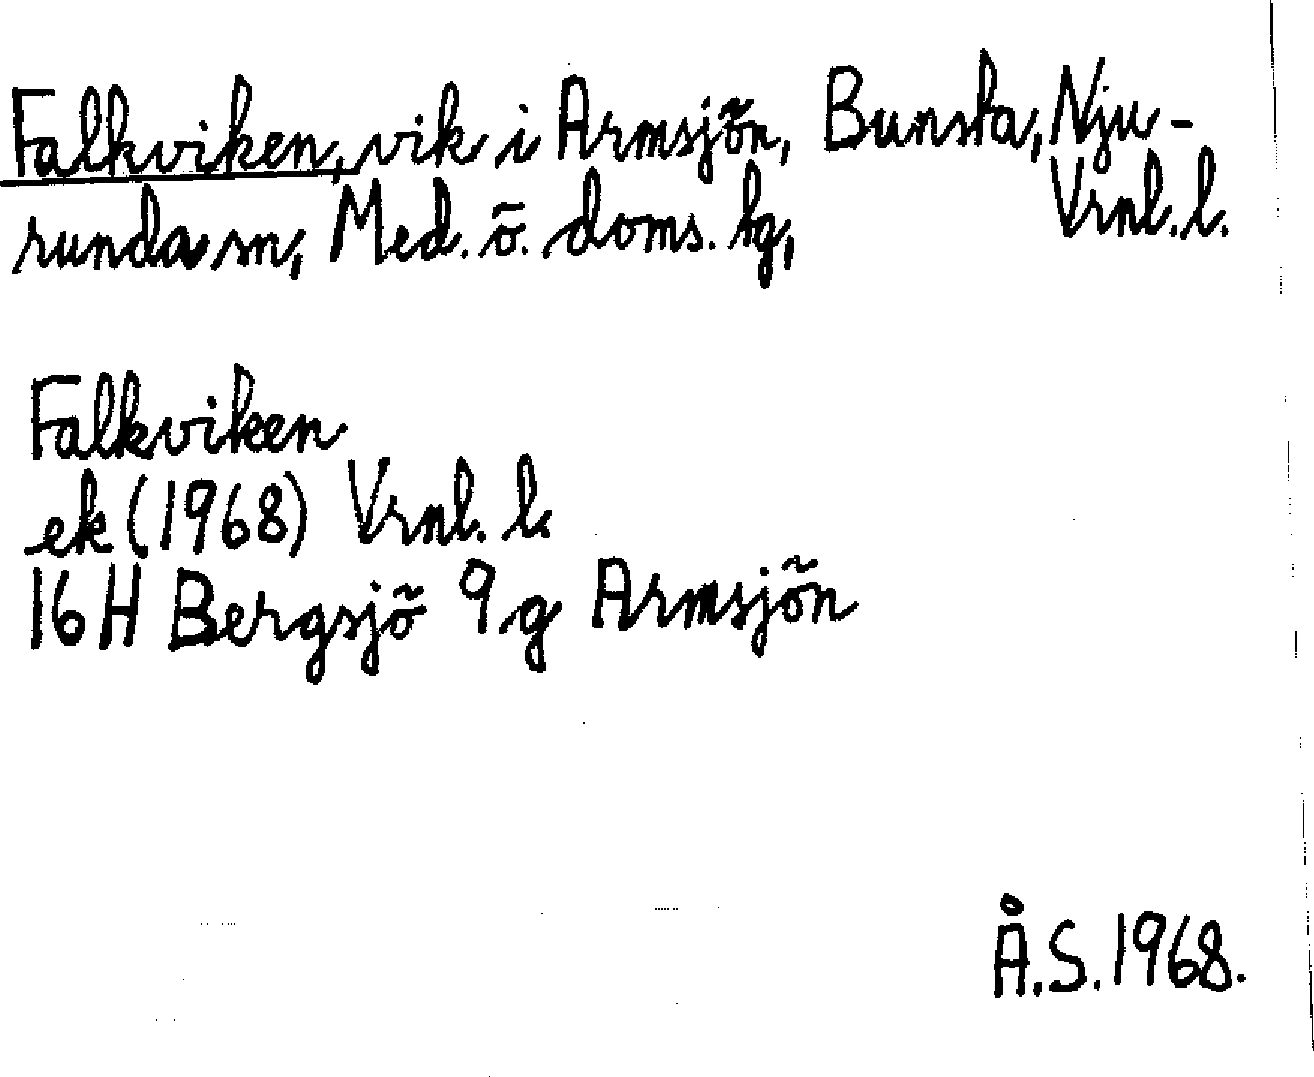 Falkviken, vik i Armsjön, Bunsta, Nju-
runda sn, Med. ö. doms. lg, Vrnl. l.
Falkviken
ek (1968) Vrnl. l.
16H Bergsjö 9g Armsjön
Å.S. 1968.